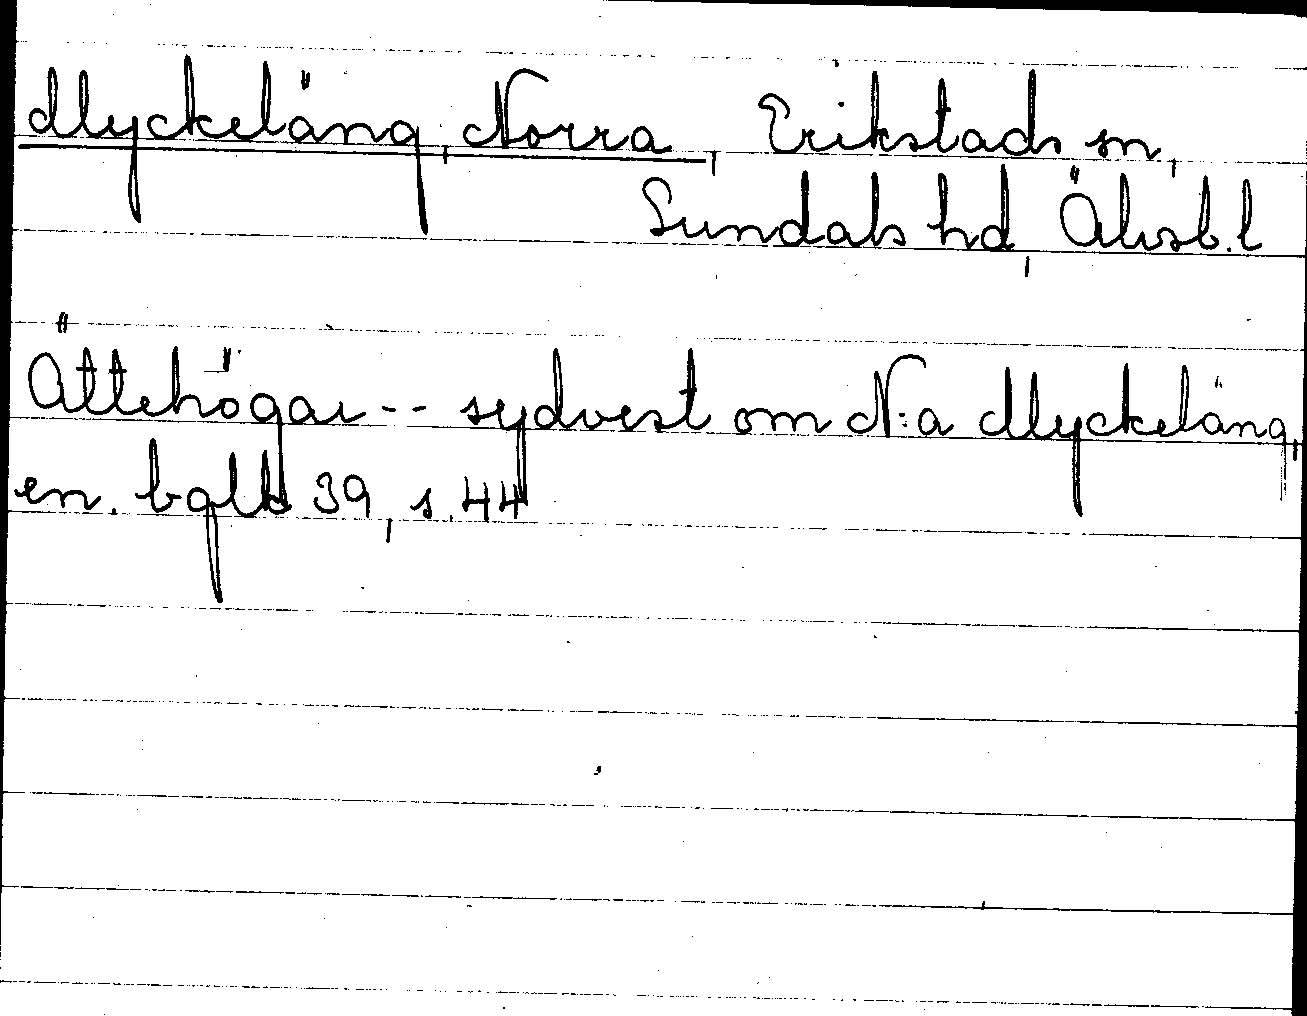 Myckeläng, Norra, Erikstads sn,
Sundals hd, Älvsb. l
Ättehögar -- sydvest om N:a Myckeläng,
en. bglk 39, s. 44